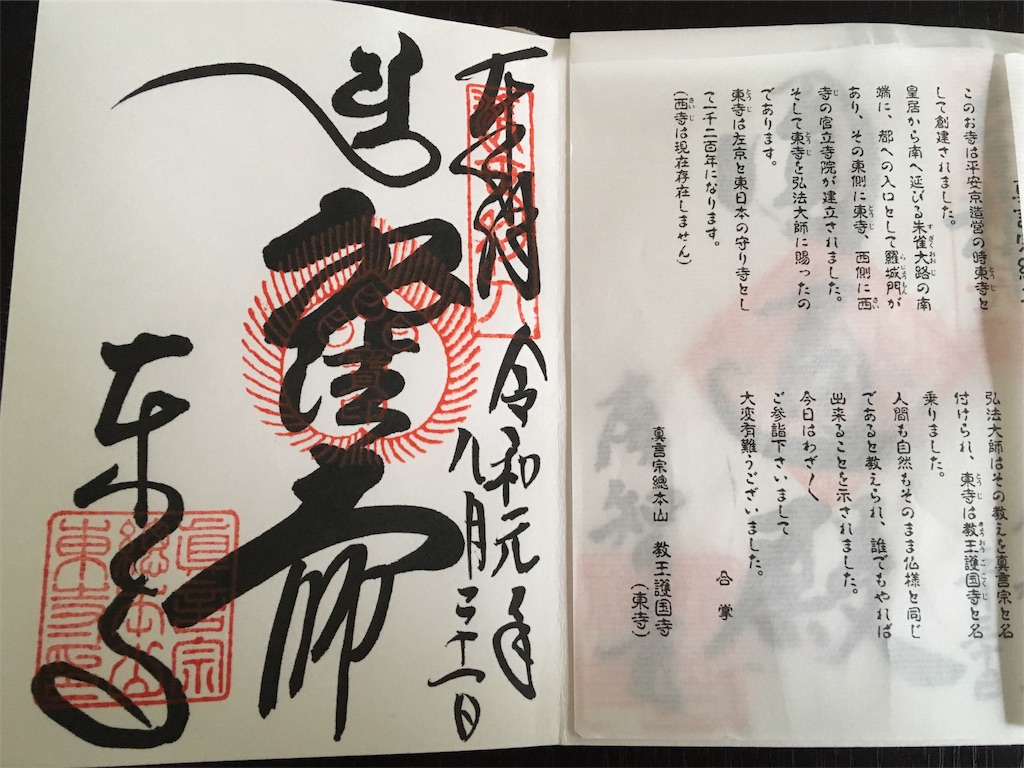 このお寺は平安京造営の時東寺と
して創建されました。
皇居から南へ延びる朱雀大路の南
端に、都への入口として羅城門が
あり、その東側に東寺、西側に西
寺の官立寺院が建立されました。
そして東寺を弘法大師に賜ったの
であります。
東寺は左京と東日本の守り寺とし
て一千二百年になります。
(西寺は現在存在しません)
弘法大師はその教えを真言宗と名
付けられ、東寺は教王護国寺と名
乗りました。
人間も自然もそのまま仏様と同じ
であると教えられ、誰でもやれば
出来ることを示されました。
今日はわざ〱
ご参詣下さいまして
大変有難うございました。
合掌
真言宗總本山 教王護国寺
(東寺)
奉拝
令和元年
八月二十一日
大師
東寺
真言宗
總本山
東寺印